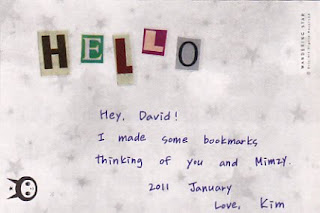 HELLO
WANDERING STAR
Hey, David!
I made some bookmarks
thinking of you and Mimzy.
2011 January
Love, Kim